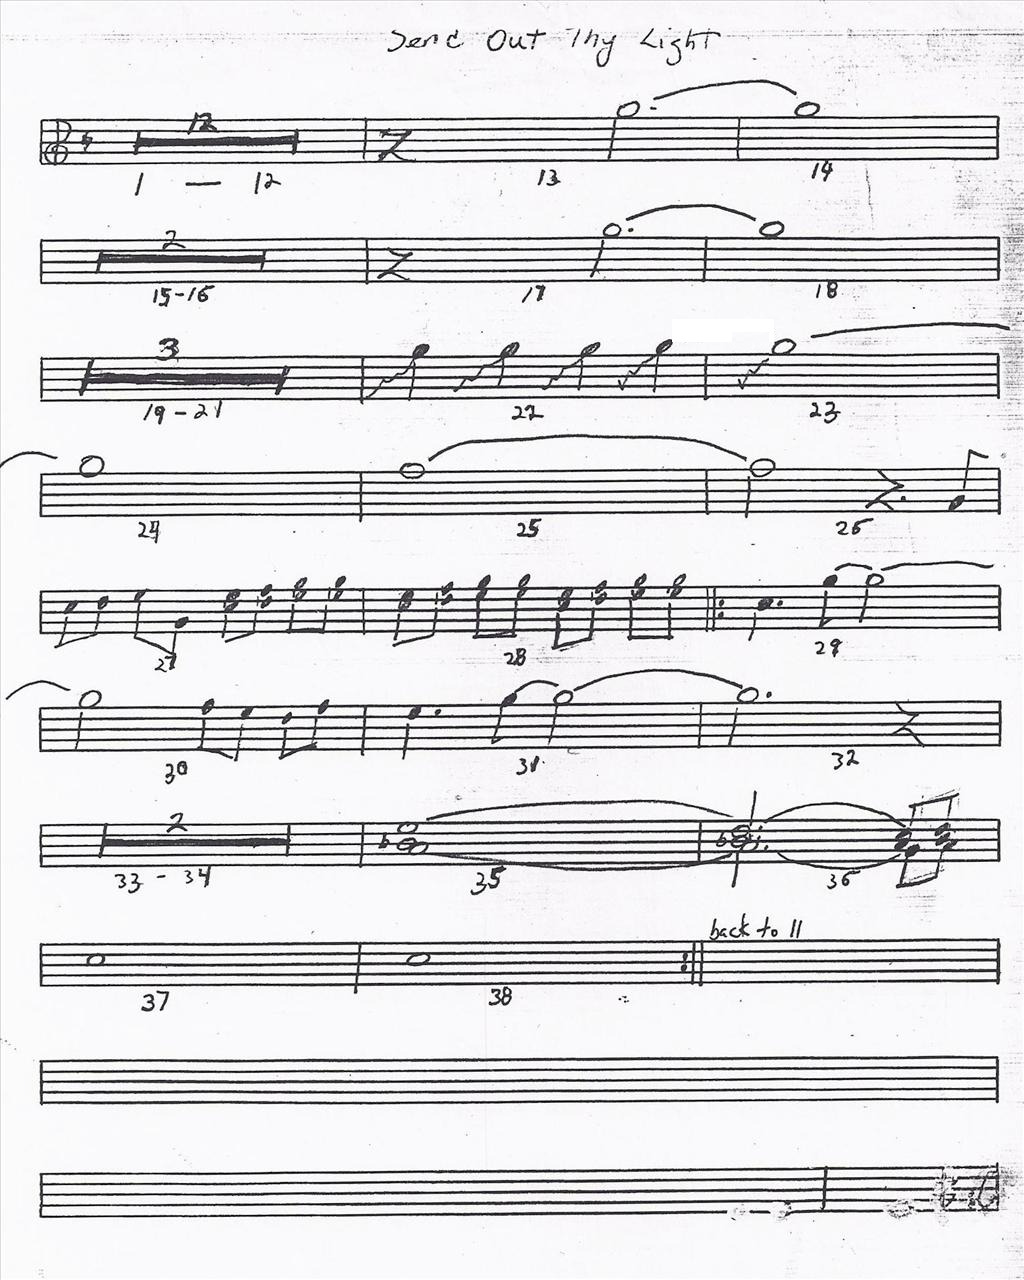 Send Out Thy Light
12
1 — 12 13 14
2
15-16 17 18
3
19-21 22 23
24 25 26
27 28 29
30 31 32
2
33 - 34 35 36
back to 11
37 38